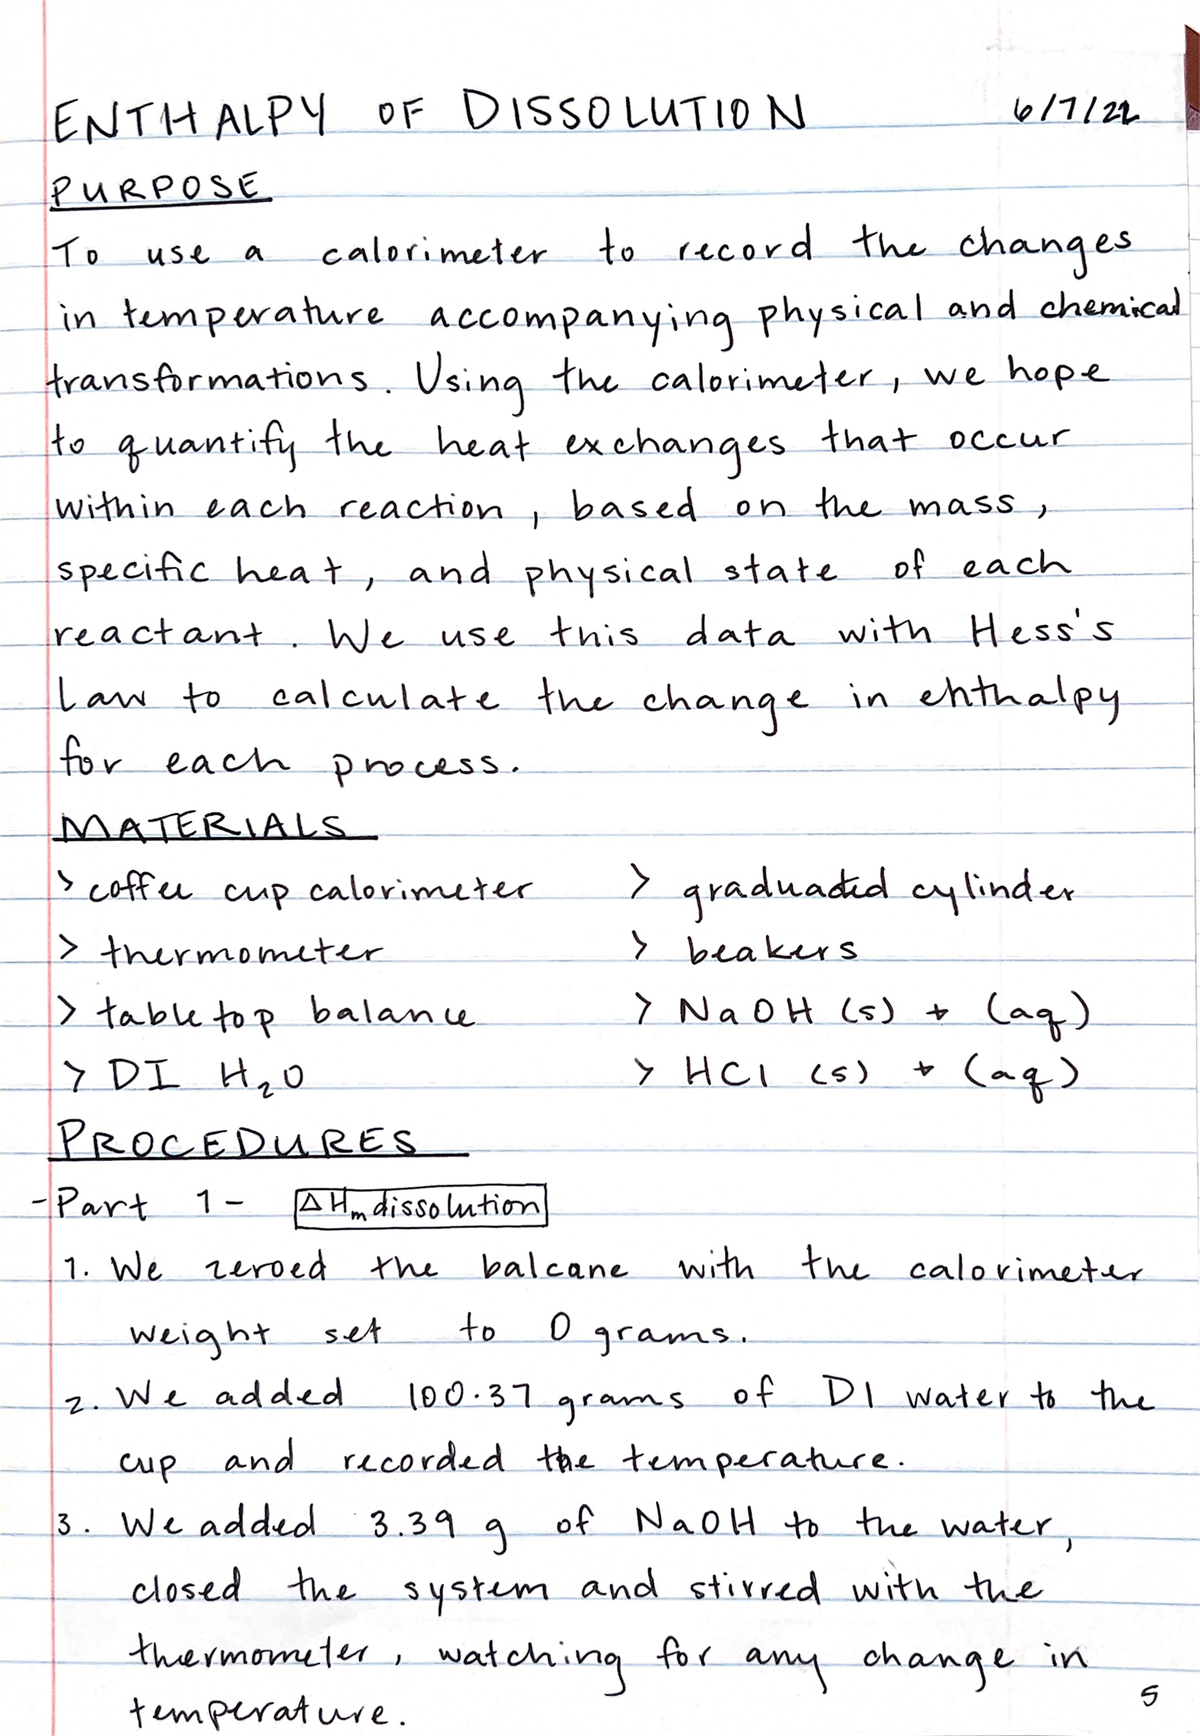 ENTHALPY OF DISSOLUTION 6/7/22
PURPOSE
To use a calorimeter to record the changes
in temperature accompanying physical and chemical
transformations. Using the calorimeter, we hope
to quantify the heat exchanges that occur
within each reaction, based on the mass,
specific heat, and physical state of each
reactant. We use this data with Hess's
Law to calculate the change in enthalpy
for each process.
MATERIALS
> coffee cup calorimeter > graduated cylinder
> thermometer > beakers
> tabletop balance > NaOH (s) + (aq)
> DI H₂O > HCl (s) + (aq)
PROCEDURES
- Part 1 - ΔHₘ dissolution
1. We zeroed the balcane with the calorimeter
weight set to 0 grams.
2. We added 100.37 grams of DI water to the
cup and recorded the temperature.
3. We added 3.39 g of NaOH to the water,
closed the system and stirred with the
thermometer, watching for any change in
temperature.
5